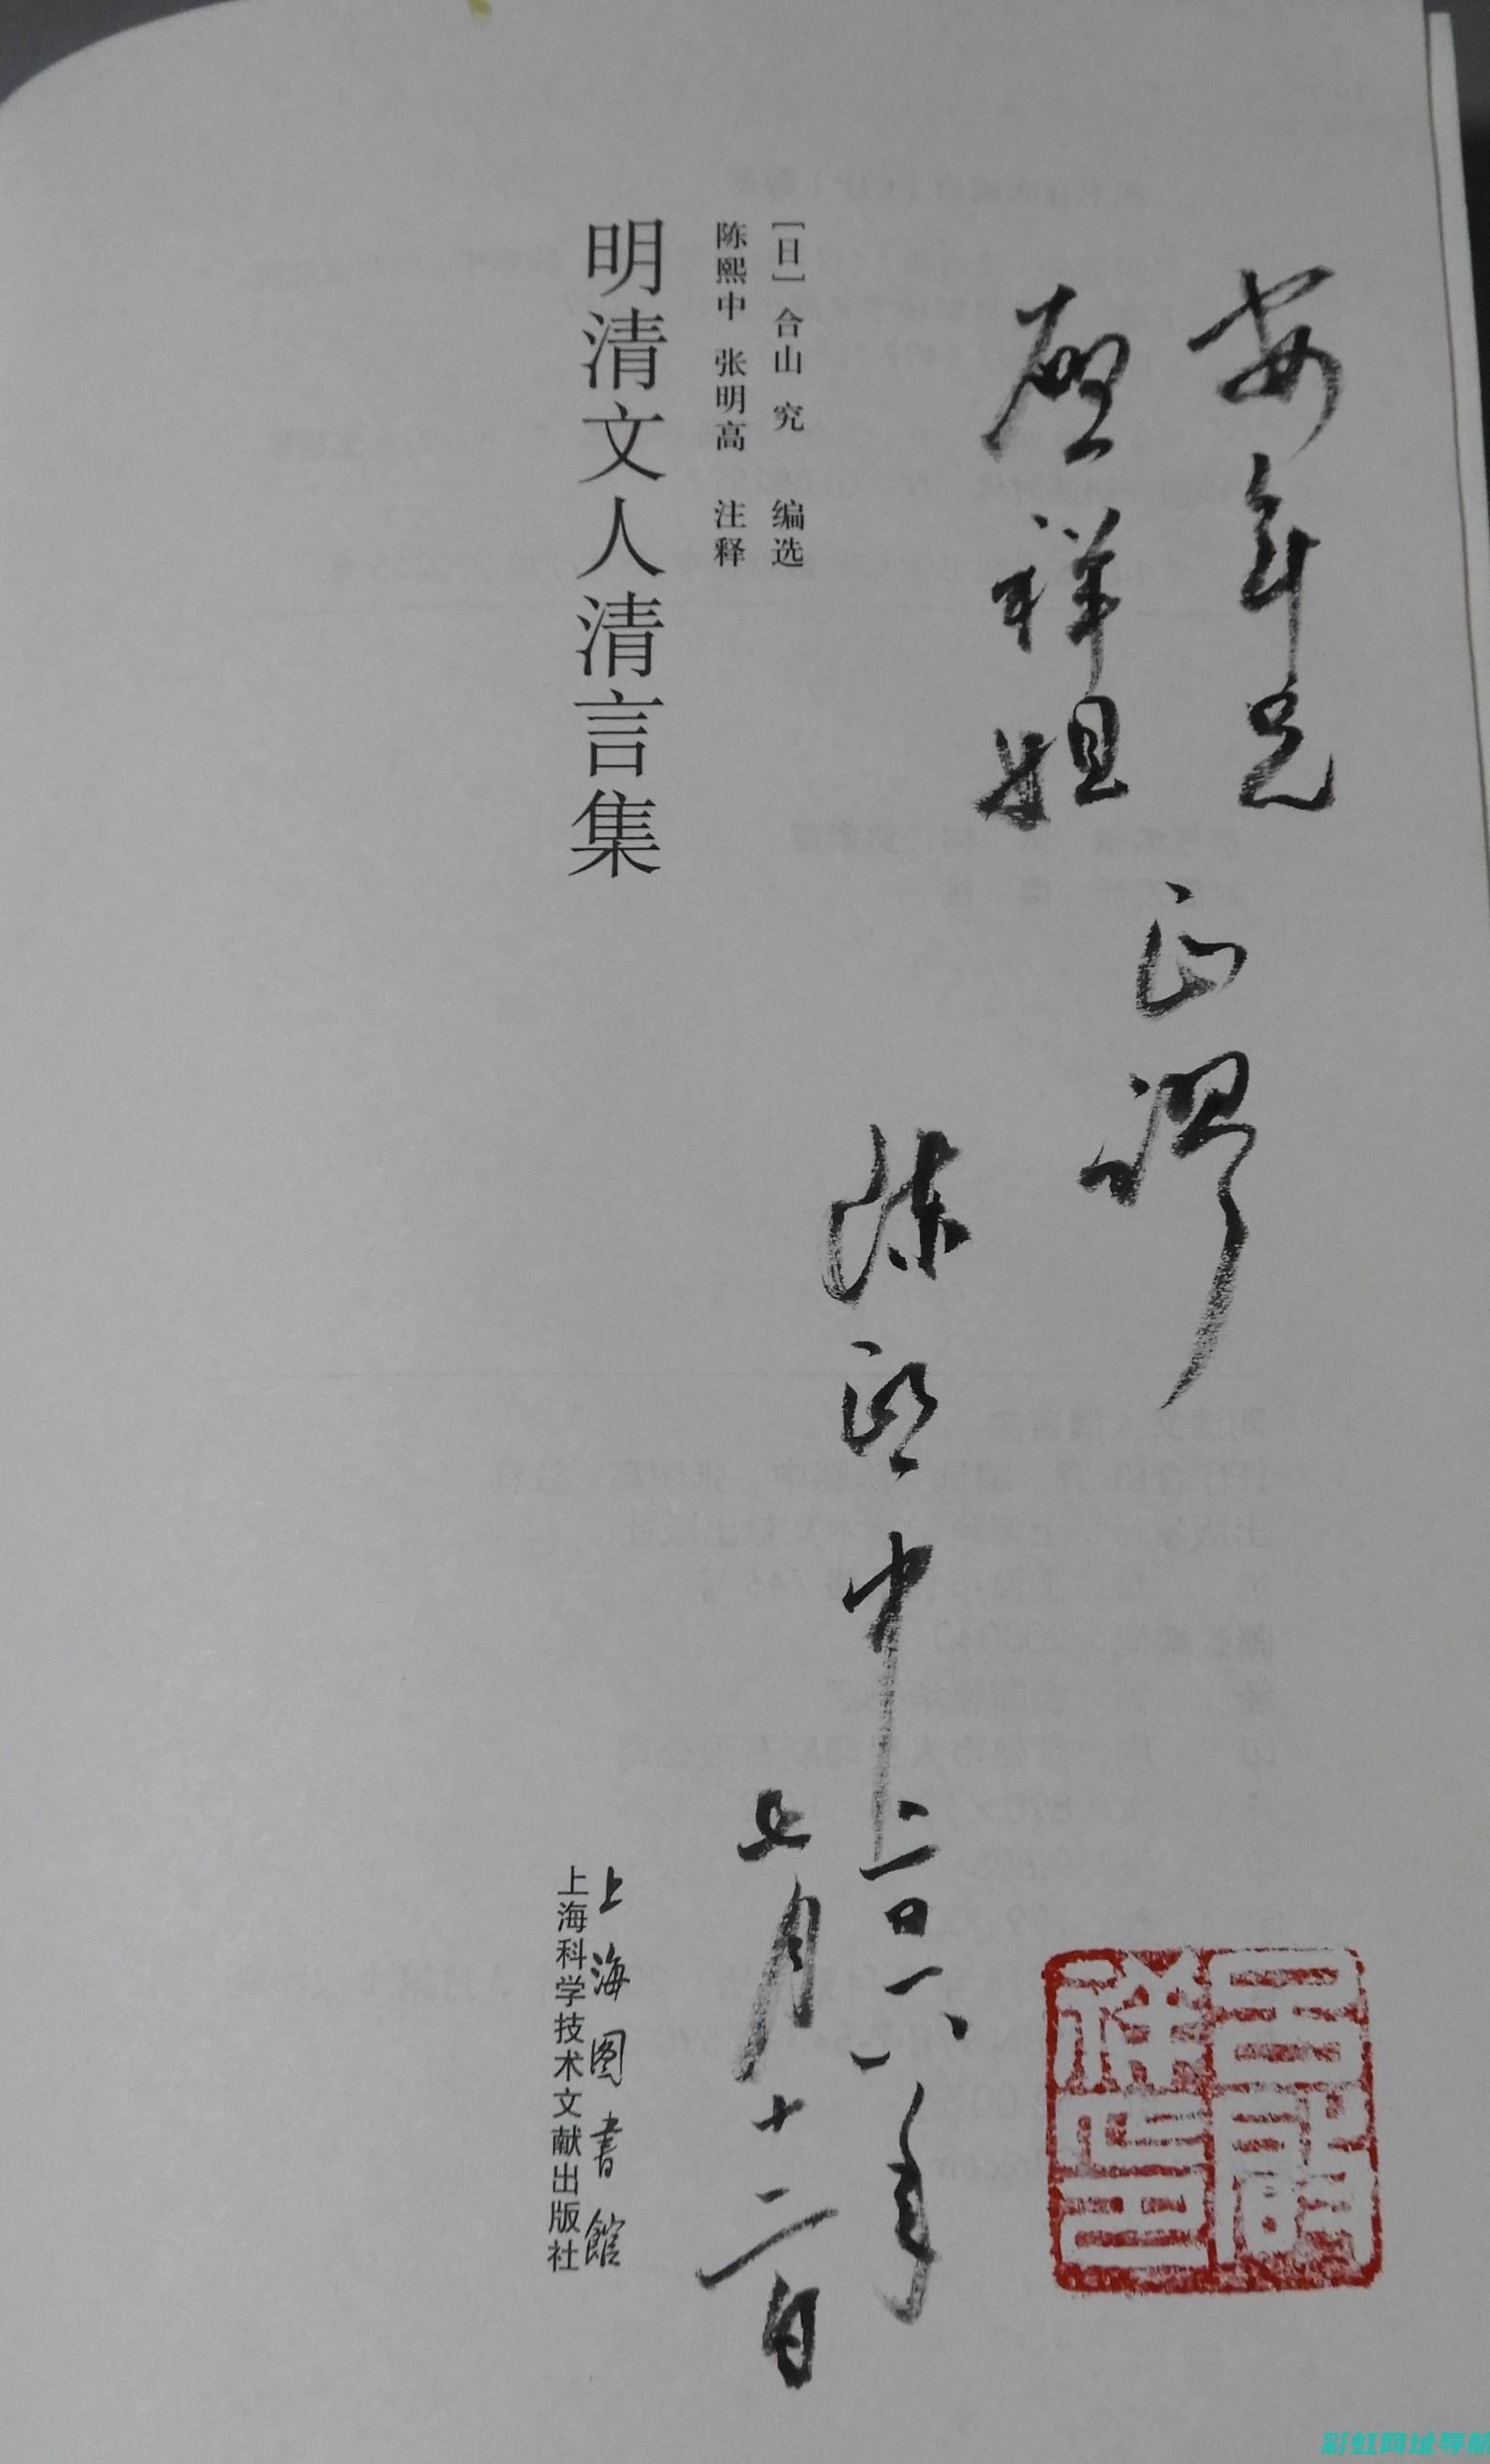 安年兄
启祥姐
正谬
陈熙中
二〇一八年
七月十二日
[日]合山 究 编选
陈熙中 张明高 注释
明清文人清言集
上海图書館
上海科学技术文献出版社
彩虹网址导航